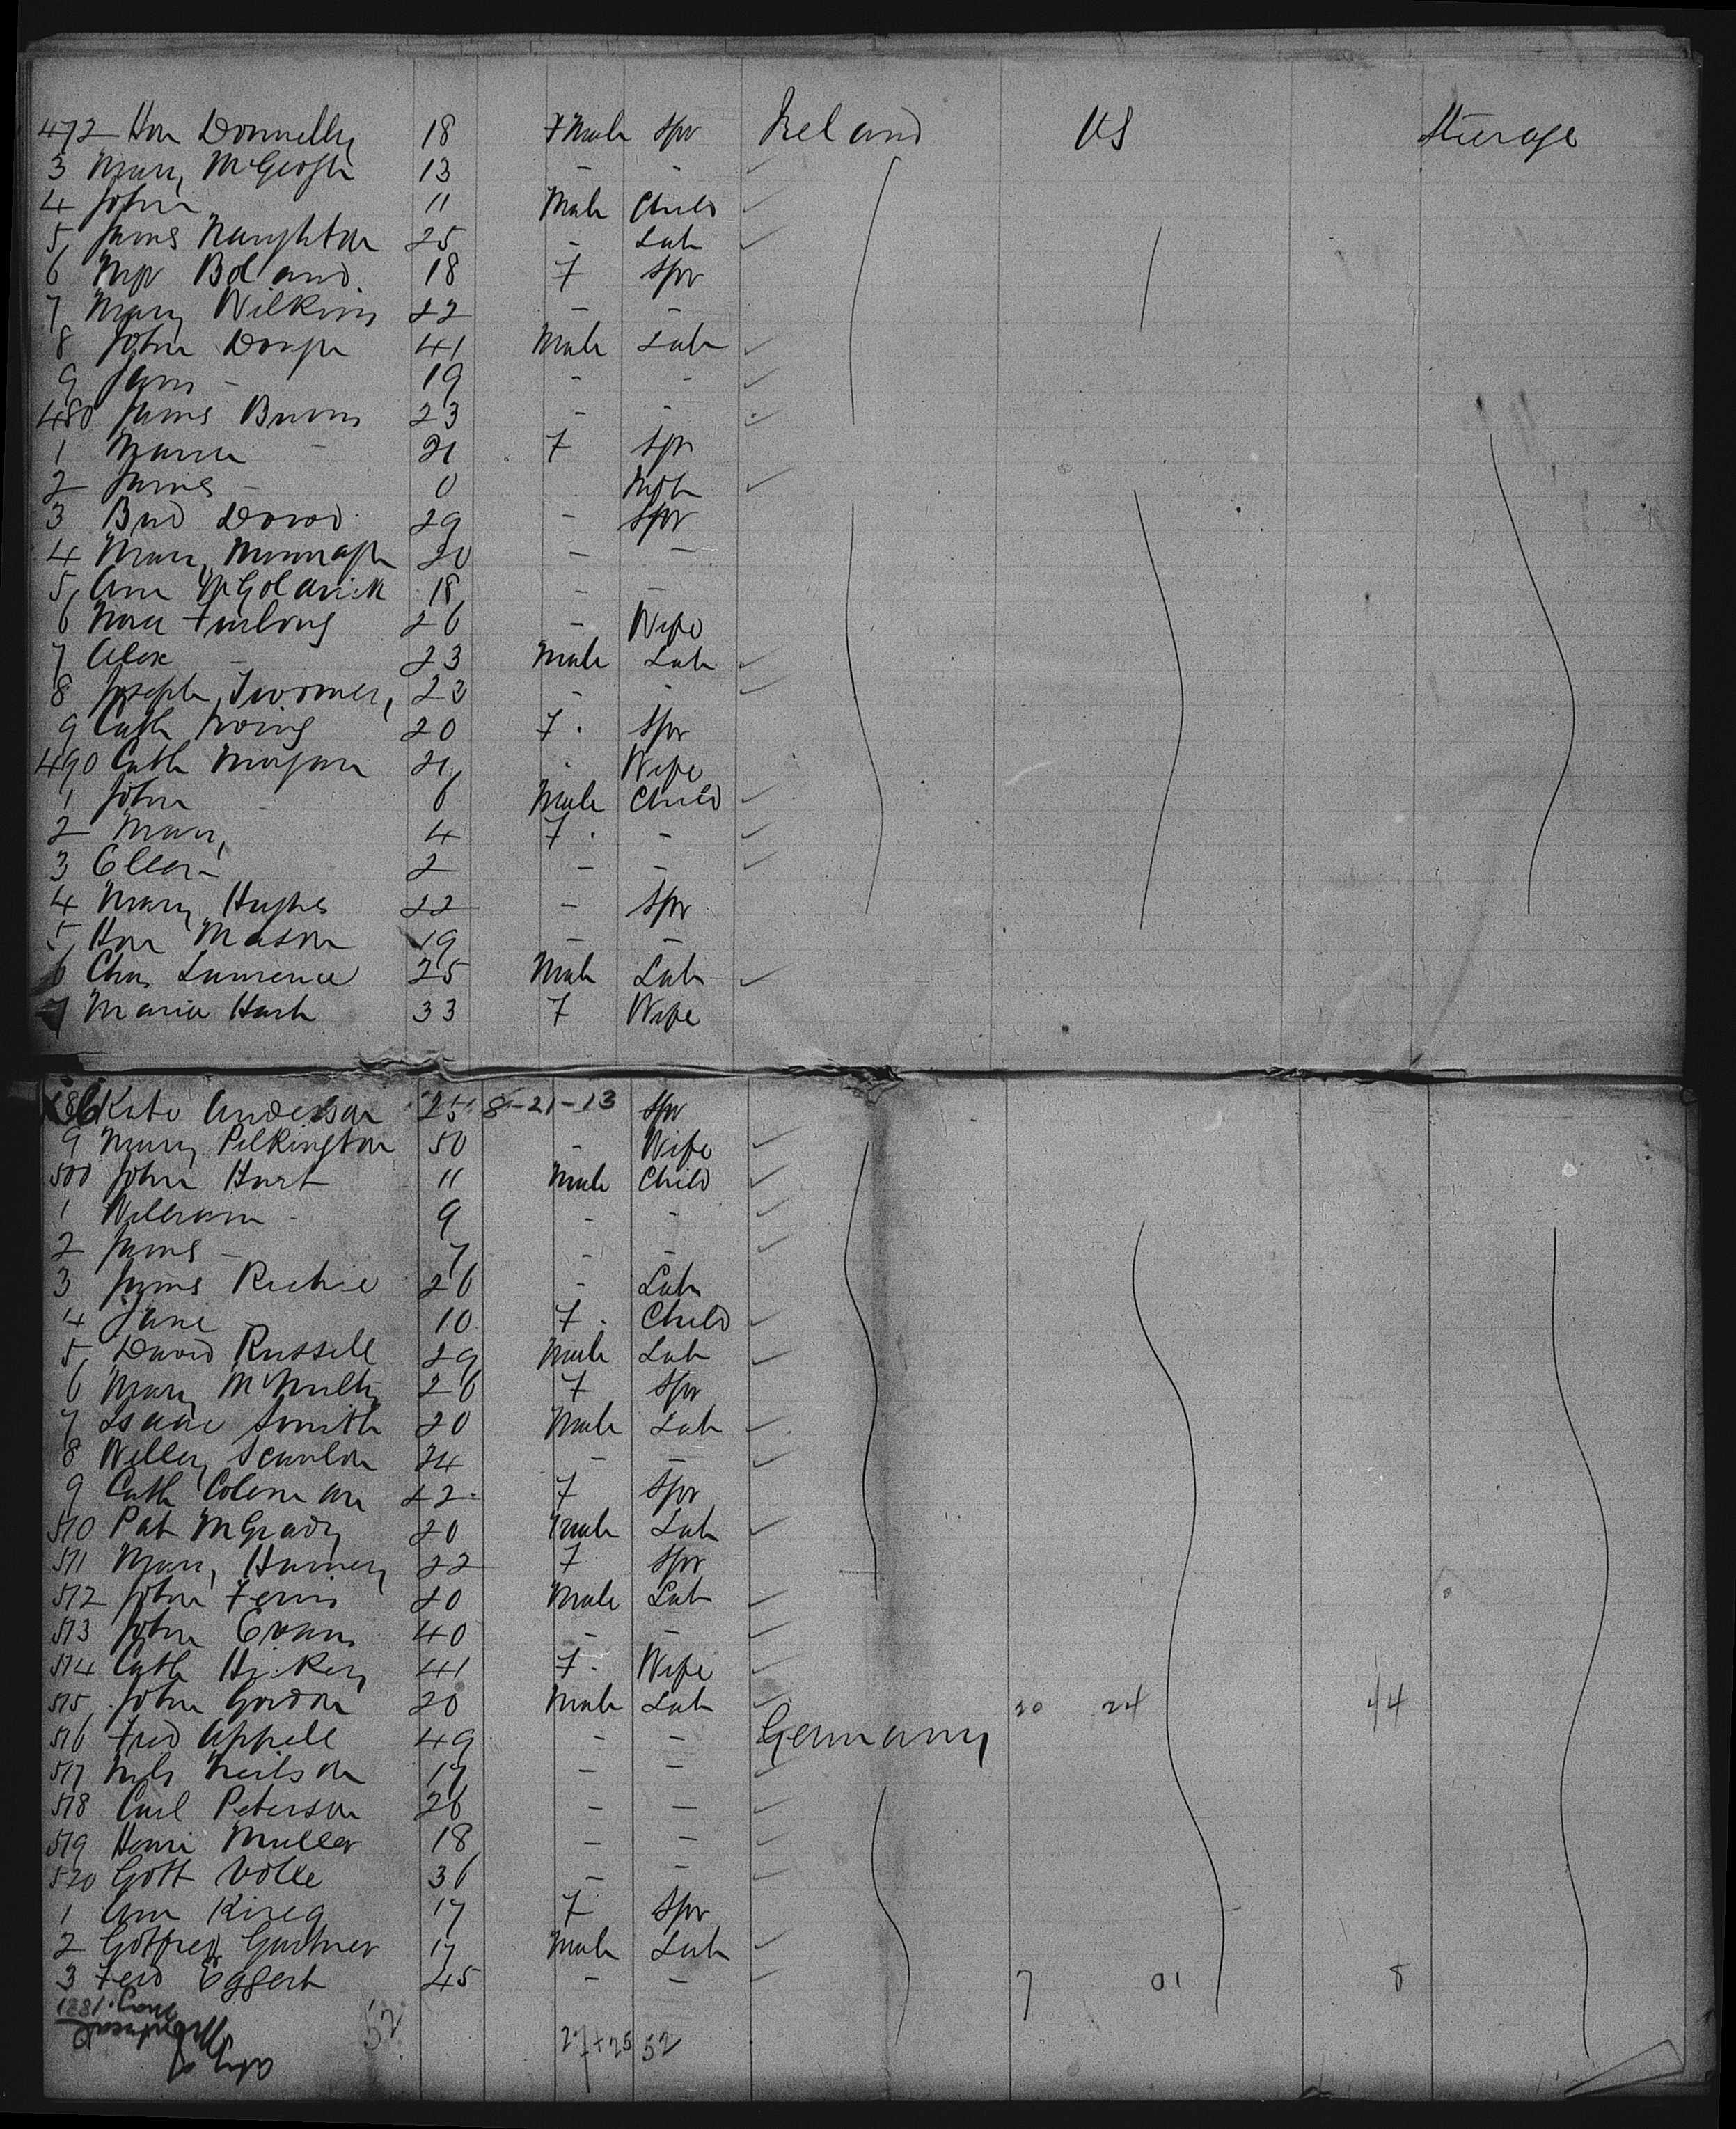 472 Hon Donnelly 18 Fmale Spr Ireland US Steerage
3 Mary McGeogh 13 - -
4 John 11 Male Child
5 James Naughton 25 - Lab
6 Boland 18 F Spr
7 Mary Wilkins 22 - -
8 John 41 Male Lab
9 - 19 - -
480 James Burns 23 - -
1 Maria - 21 F Spr
2 James - 0
3 Brid Dowd 29 - Spr
4 Mary 20 - -
5 Ann McGolarick 18 - -
6 Nora Furlong 26 - Wife
7 Alex - 23 Male Lab
8 Joseph Twomey 23 - -
9 Cath 20 F Spr
490 Cath 21 - Wife
1 John - 6 Male Child
2 Mary 4 F -
3 Ellen - 2 - -
4 Mary Hughes 22 - Spr
5 Hon Mason 19 - -
6 Chas Lawrence 25 Male Lab
7 Maria Hart 33 F Wife
8 Kate Anderson 25 8-21-13 Spr
9 Mary Pilkington 50 - Wife
500 John Hart 11 Male Child
1 William - 9 - -
2 James - 7 - -
3 James Richie 26 - Lab
4 Jane - 10 F Child
5 David Russell 29 Male Lab
6 Mary McNulty 26 F Spr
7 Isaac Smith 20 Male Lab
8 Scanlon 24 - -
9 Cath Coleman 22 F Spr
510 Pat McGrady 20 Male Lab
511 Mary 22 F Spr
512 John Ferris 20 Male Lab
513 John Evans 40 - -
514 Cath Hickey 41 F Wife
515 John Gordon 20 Male Lab 20 24 44
516 Fred Appell 49 - - Germany
517 Nils Neilson 17 - -
518 Carl Peterson 26 - -
519 Henri Muller 18 - -
520 Gott Volle 36 - -
1 Ann 17 F Spr
2 Gotfred Gartner 17 Male Lab
3 Ferd Eggert 45 - - 7 01 8
1881
52 27+25 52